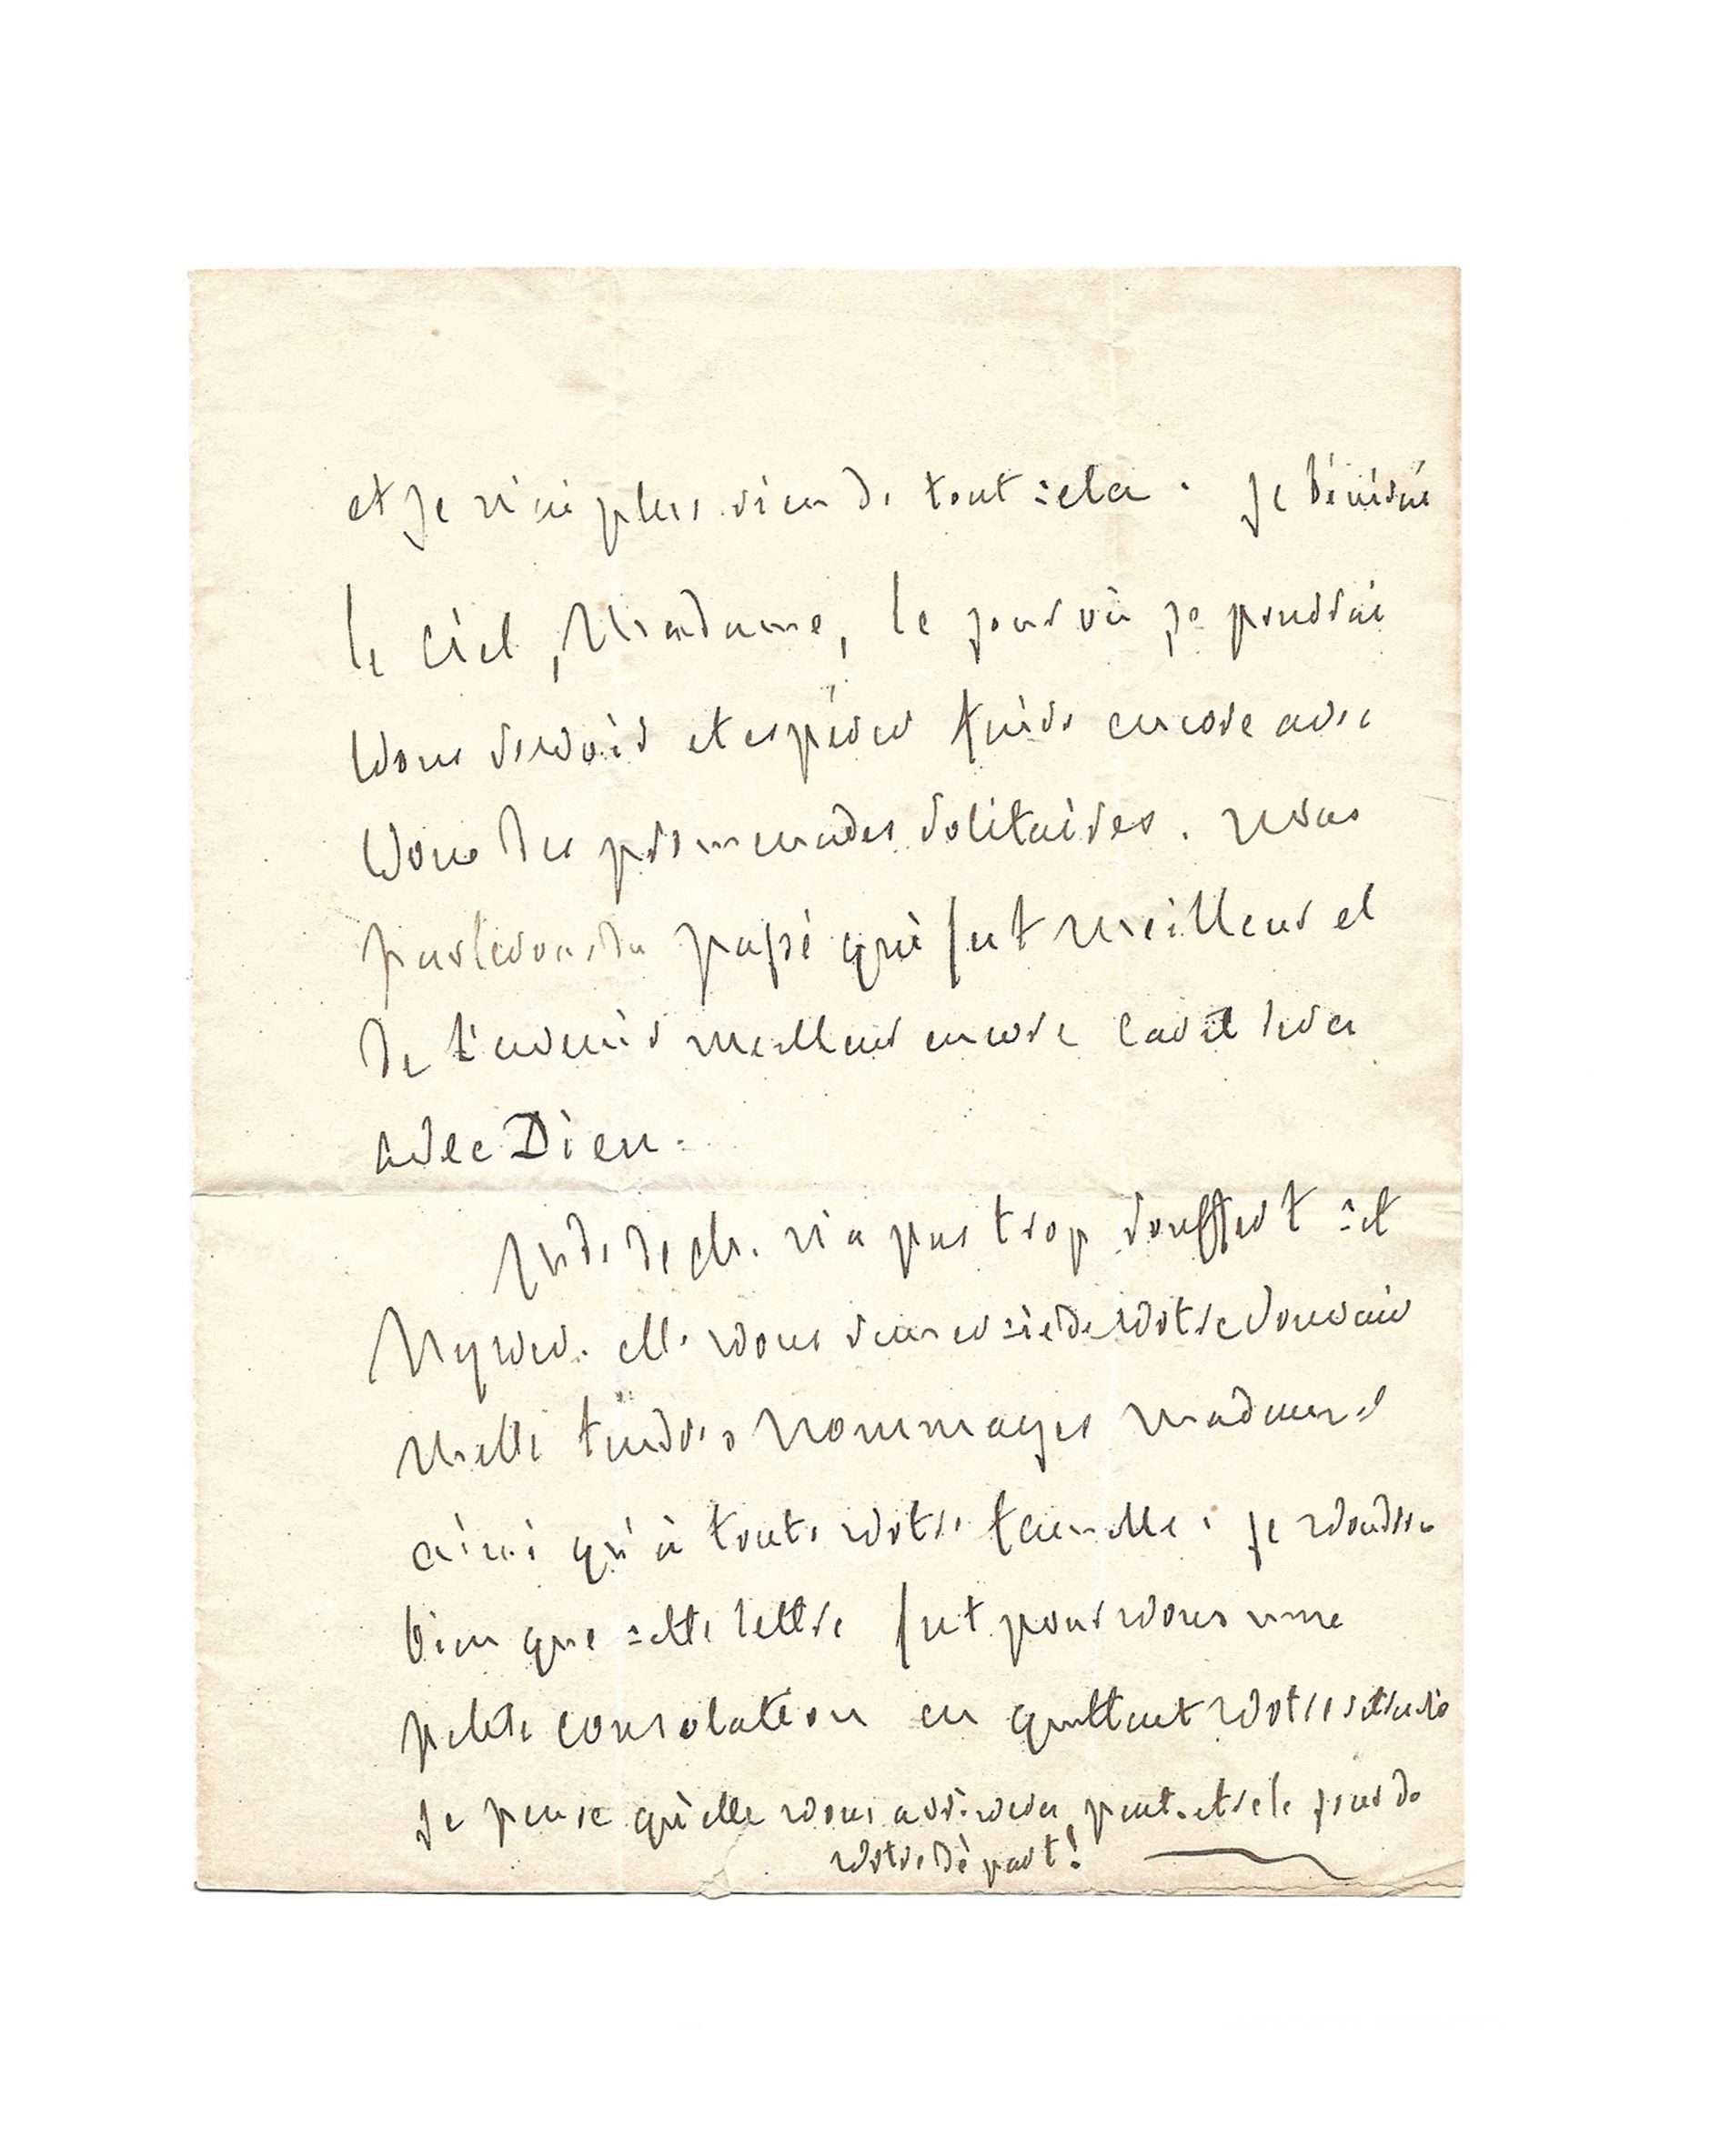 et je n'ai plus rien de tout cela. je bénirai
le Ciel, Madame, le jour où je pourrai
vous revoir et espérer faire encore avec
vous des promenades solitaires. nous
parlerons du passé qui fut meilleur et
de l'avenir meilleur encore car il sera
avec Dieu.
Mde de Ch. n'a pas trop souffert cet
hyver. elle vous remercie de votre souvenir
mille tendres hommages madame
ainsi qu'à toute votre famille. je voudrais
bien que cette lettre fut pour vous une
petite consolation en quittant votre retraite
je pense qu'elle vous arrivera peut-etre le jour de
votre départ!